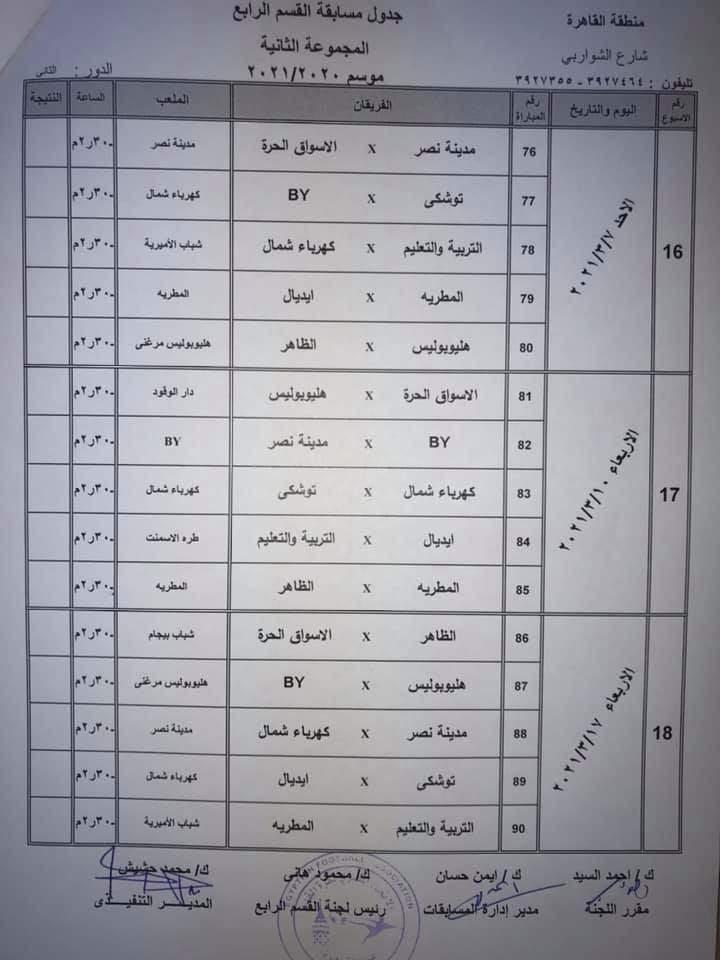 منطقة القاهرة
شارع الشواربي
تليفون : ٣٩٢٧٤٦٤ - ٣٩٢٧٣٥٥
جدول مسابقة القسم الرابع
المجموعة الثانية
موسم ٢٠٢١/٢٠٢٠
الدور : الثانى
رقم الاسبوع اليوم والتاريخ رقم المباراة الفريقان الملعب الساعة النتيجة
16 الاحد ٢٠٢١/٣/٧
76 مدينة نصر x الاسواق الحرة مدينة نصر ٢٫٣٠م
77 توشكى x BY كهرباء شمال ٢٫٣٠م
78 التربية والتعليم x كهرباء شمال شباب الأميرية ٢٫٣٠م
79 المطريه x ايديال المطريه ٢٫٣٠م
80 هليوبوليس x الظاهر هليوبوليس مرغنى ٢٫٣٠م
17 الاربعاء ٢٠٢١/٣/١٠
81 الاسواق الحرة x هليوبوليس دار الوقود ٢٫٣٠م
82 BY x مدينة نصر BY ٢٫٣٠م
83 كهرباء شمال x توشكى كهرباء شمال ٢٫٣٠م
84 ايديال x التربية والتعليم طره الاسمنت ٢٫٣٠م
85 المطريه x الظاهر المطريه ٢٫٣٠م
18 الاربعاء ٢٠٢١/٣/١٧
86 الظاهر x الاسواق الحرة شباب بيجام ٢٫٣٠م
87 هليوبوليس x BY هليوبوليس مرغنى ٢٫٣٠م
88 مدينة نصر x كهرباء شمال مدينة نصر ٢٫٣٠م
89 توشكى x ايديال كهرباء شمال ٢٫٣٠م
90 التربية والتعليم x المطريه شباب الأميرية ٢٫٣٠م
ك/ احمد السيد ك/ ايمن حسان ك/ محمود هانى ك/ محمد حشيش
مقرر اللجنة مدير إدارة المسابقات رئيس لجنة القسم الرابع المديـر التنفيـذى
EGYPTIAN FOOTBALL ASSOCIATION